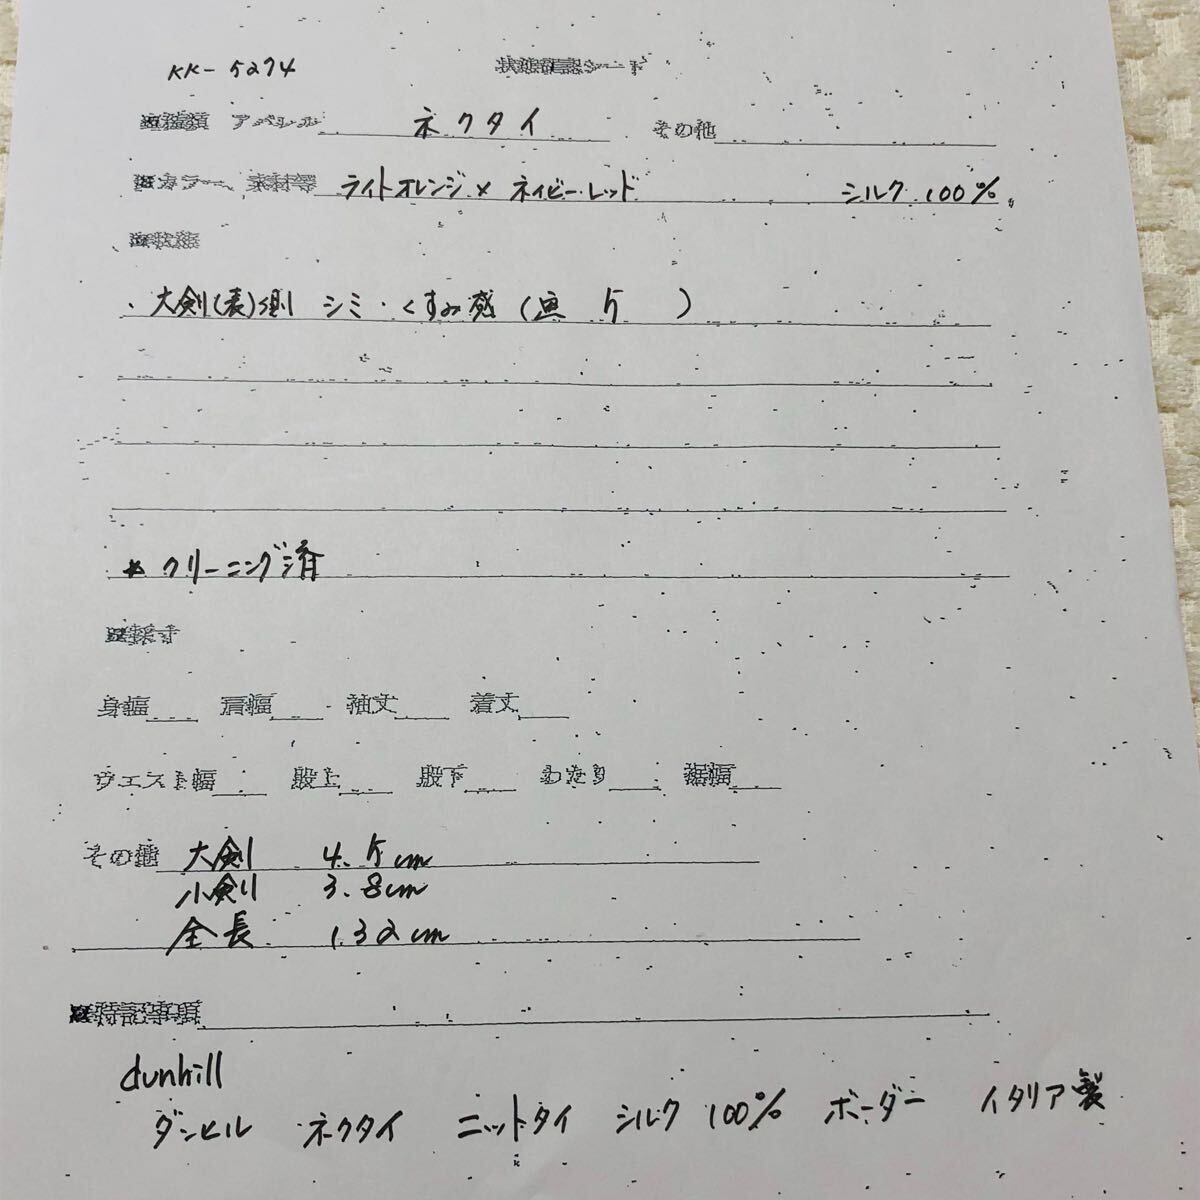 KK-5274 状態確認シート
※種類 アパレル ネクタイ その他
※カラー、素材等 ライトオレンジ×ネイビー・レッド シルク 100%。
※状態
・大剣(表)側 シミ・くすみ感(点 5 )
* クリーニング済
※採寸
身幅 肩幅 袖丈 着丈
ウエスト幅 股上 股下 わたり 裾幅
その他 大剣 4.5cm
小剣 3.8cm
全長 132cm
※特記事項
dunhill
ダンヒル ネクタイ ニットタイ シルク 100% ボーダー イタリア製